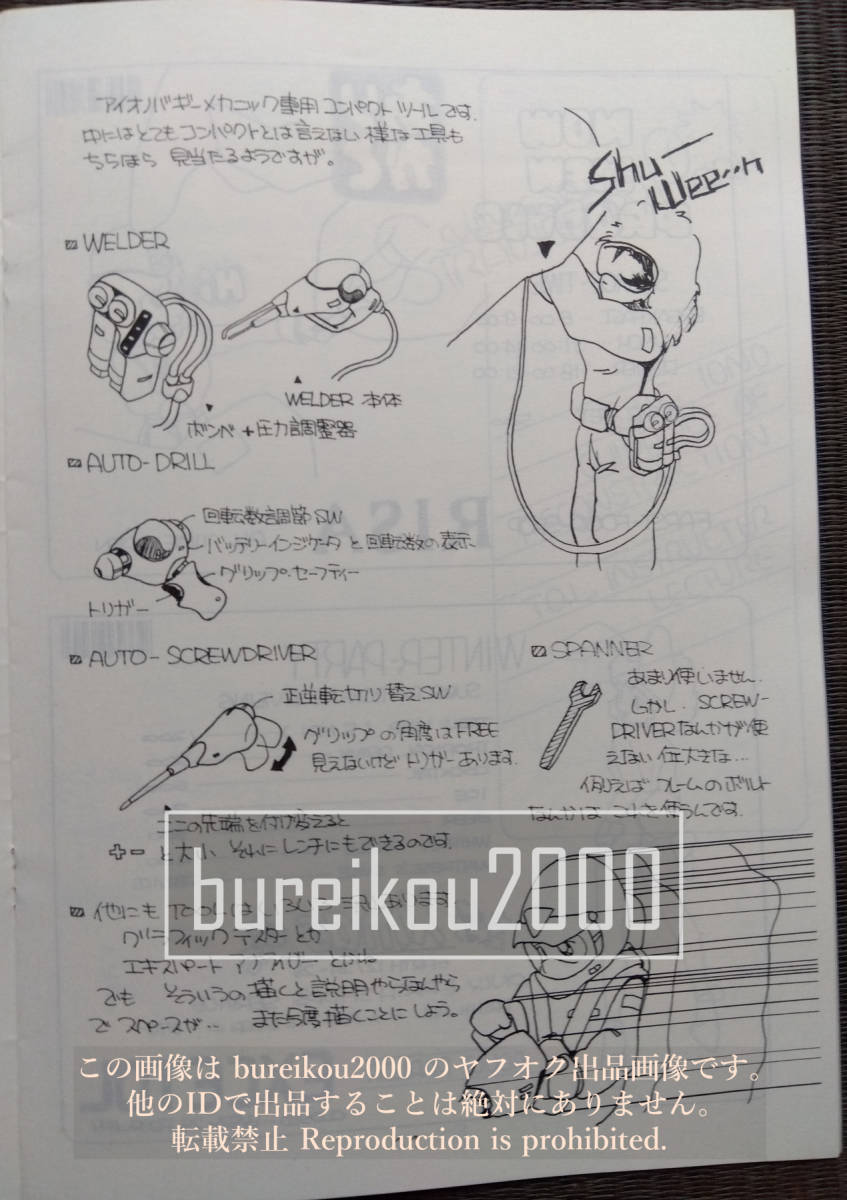 アイオノバギーメカニック専用コンパクトツールです.
中にはとてもコンパクトとは言えない様な工具も
ちらほら 見当たるようですが。
Shu-
Wee--n
WELDER
WELDER 本体
ボンベ+圧力調整器
AUTO-DRILL
回転数調節SW
バッテリーインジケータと回転数の表示
グリップ・セーフティー
トリガー
AUTO-SCREWDRIVER
正逆転切り替えSW
グリップの角度はFREE
見えないけどトリガーあります.
ここの先端を付け変えると
+- と大小 それにレンチにもできるのです.
SPANNER
あまり使いません.
しかし、SCREW-
DRIVERなんかが使
えない位大きな...
例えばフレームのボルト
なんかはこれを使うんです.
他にもTOOLは
グラフィックテスターとか
エキスパート
でも そういうの描くと説明やらなんやら
でスペースが‥ また今度描くことにしよう。
bureikou2000
この画像は bureikou2000 のヤフオク出品画像です。
他のIDで出品することは絶対にありません。
転載禁止 Reproduction is prohibited.